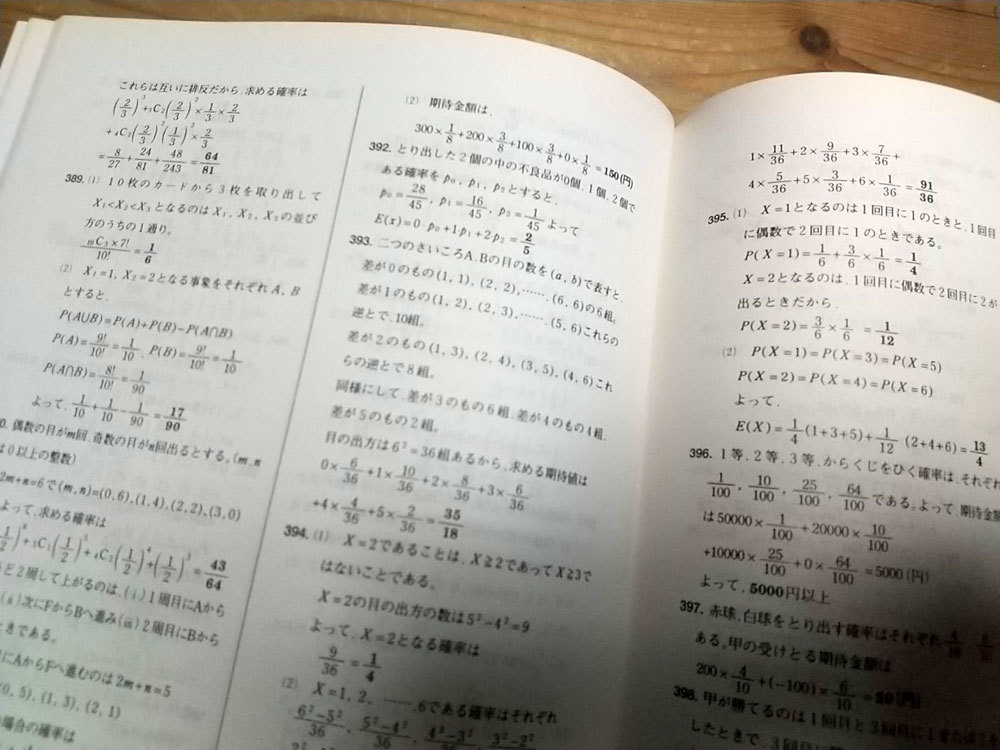 これらは互いに排反だから,求める確率は
(2/3)³+₃C₂(2/3)²×1/3×2/3
+₄C₂(2/3)²(1/3)²×2/3
=8/27+24/81+48/243=64/81
389. (1) 10枚のカードから3枚を取り出して
X₁<X₂<X₃となるのはX₁, X₂, X₃の並び
方のうちの1通り。
₁₀C₃×7!/10!=1/6
(2) X₁=1, X₂=2となる事象をそれぞれA, B
とすると,
P(A∪B)=P(A)+P(B)−P(A∩B)
P(A)=9!/10!=1/10, P(B)=9!/10!=1/10
P(A∩B)=8!/10!=1/90
よって, 1/10+1/10−1/90=17/90
0. 偶数の目がm回, 奇数の目がn回出るとする。(m, n
は0以上の整数)
2m+n=6で(m, n)=(0, 6), (1, 4), (2, 2), (3, 0)
よって, 求める確率は
=43/64
ると2周して上がるのは, (i) 1周目にAから
(ii) 次にFからBへ進み (iii) 2周目にBから
ときである。
にAからFへ進むのは2m+n=5
(0, 5), (1, 3), (2, 1)
場合の確率は
(2) 期待金額は,
300×1/8+200×3/8+100×3/8+0×1/8=150(円)
392. とり出した2個の中の不良品が0個, 1個, 2個で
ある確率をp₀, p₁, p₂とすると,
p₀=28/45, p₁=16/45, p₂=1/45 よって
E(x)=0·p₀+1p₁+2p₂=2/5
393. 二つのさいころA, Bの目の数を(a, b)で表すと,
差が0のもの(1, 1), (2, 2), ……, (6, 6)の6組。
差が1のもの(1, 2), (2, 3), ……, (5, 6)これらの
逆とで, 10組。
差が2のもの(1, 3), (2, 4), (3, 5), (4, 6)これ
らの逆とで8組。
同様にして, 差が3のもの6組, 差が4のもの4組,
差が5のもの2組。
目の出方は6²=36組あるから, 求める期待値は
0×6/36+1×10/36+2×8/36+3×6/36
+4×4/36+5×2/36=35/18
394. (1) X=2であることは, X≧2であってX≧3で
はないことである。
X=2の目の出方の数は5²−4²=9
よって, X=2となる確率は
9/36=1/4
(2) X=1, 2, ……, 6である確率はそれぞれ
6²−5²/36, 5²−4²/36, 4²−3²/36, 3²−2²/36
1×11/36+2×9/36+3×7/36+
4×5/36+5×3/36+6×1/36=91/36
395. (1) X=1となるのは1回目に1のときと, 1回目
に偶数で2回目に1のときである。
P(X=1)=1/6+3/6×1/6=1/4
X=2となるのは, 1回目に偶数で2回目に2が
出るときだから,
P(X=2)=3/6×1/6=1/12
(2) P(X=1)=P(X=3)=P(X=5)
P(X=2)=P(X=4)=P(X=6)
よって,
E(X)=1/4(1+3+5)+1/12(2+4+6)=13/4
396. 1等, 2等, 3等, からくじをひく確率は, それぞれ
1/100, 10/100, 25/100, 64/100である。よって, 期待金額
は50000×1/100+20000×10/100
+10000×25/100+0×64/100=5000(円)
よって, 5000円以上
397. 赤球, 白球をとり出す確率はそれぞれ4/10, 6/10
ある。甲の受けとる期待金額は
200×4/10+(−100)×6/10=20(円)
398. 甲が勝てるのは1回目と3回目に
したときで, 3回目